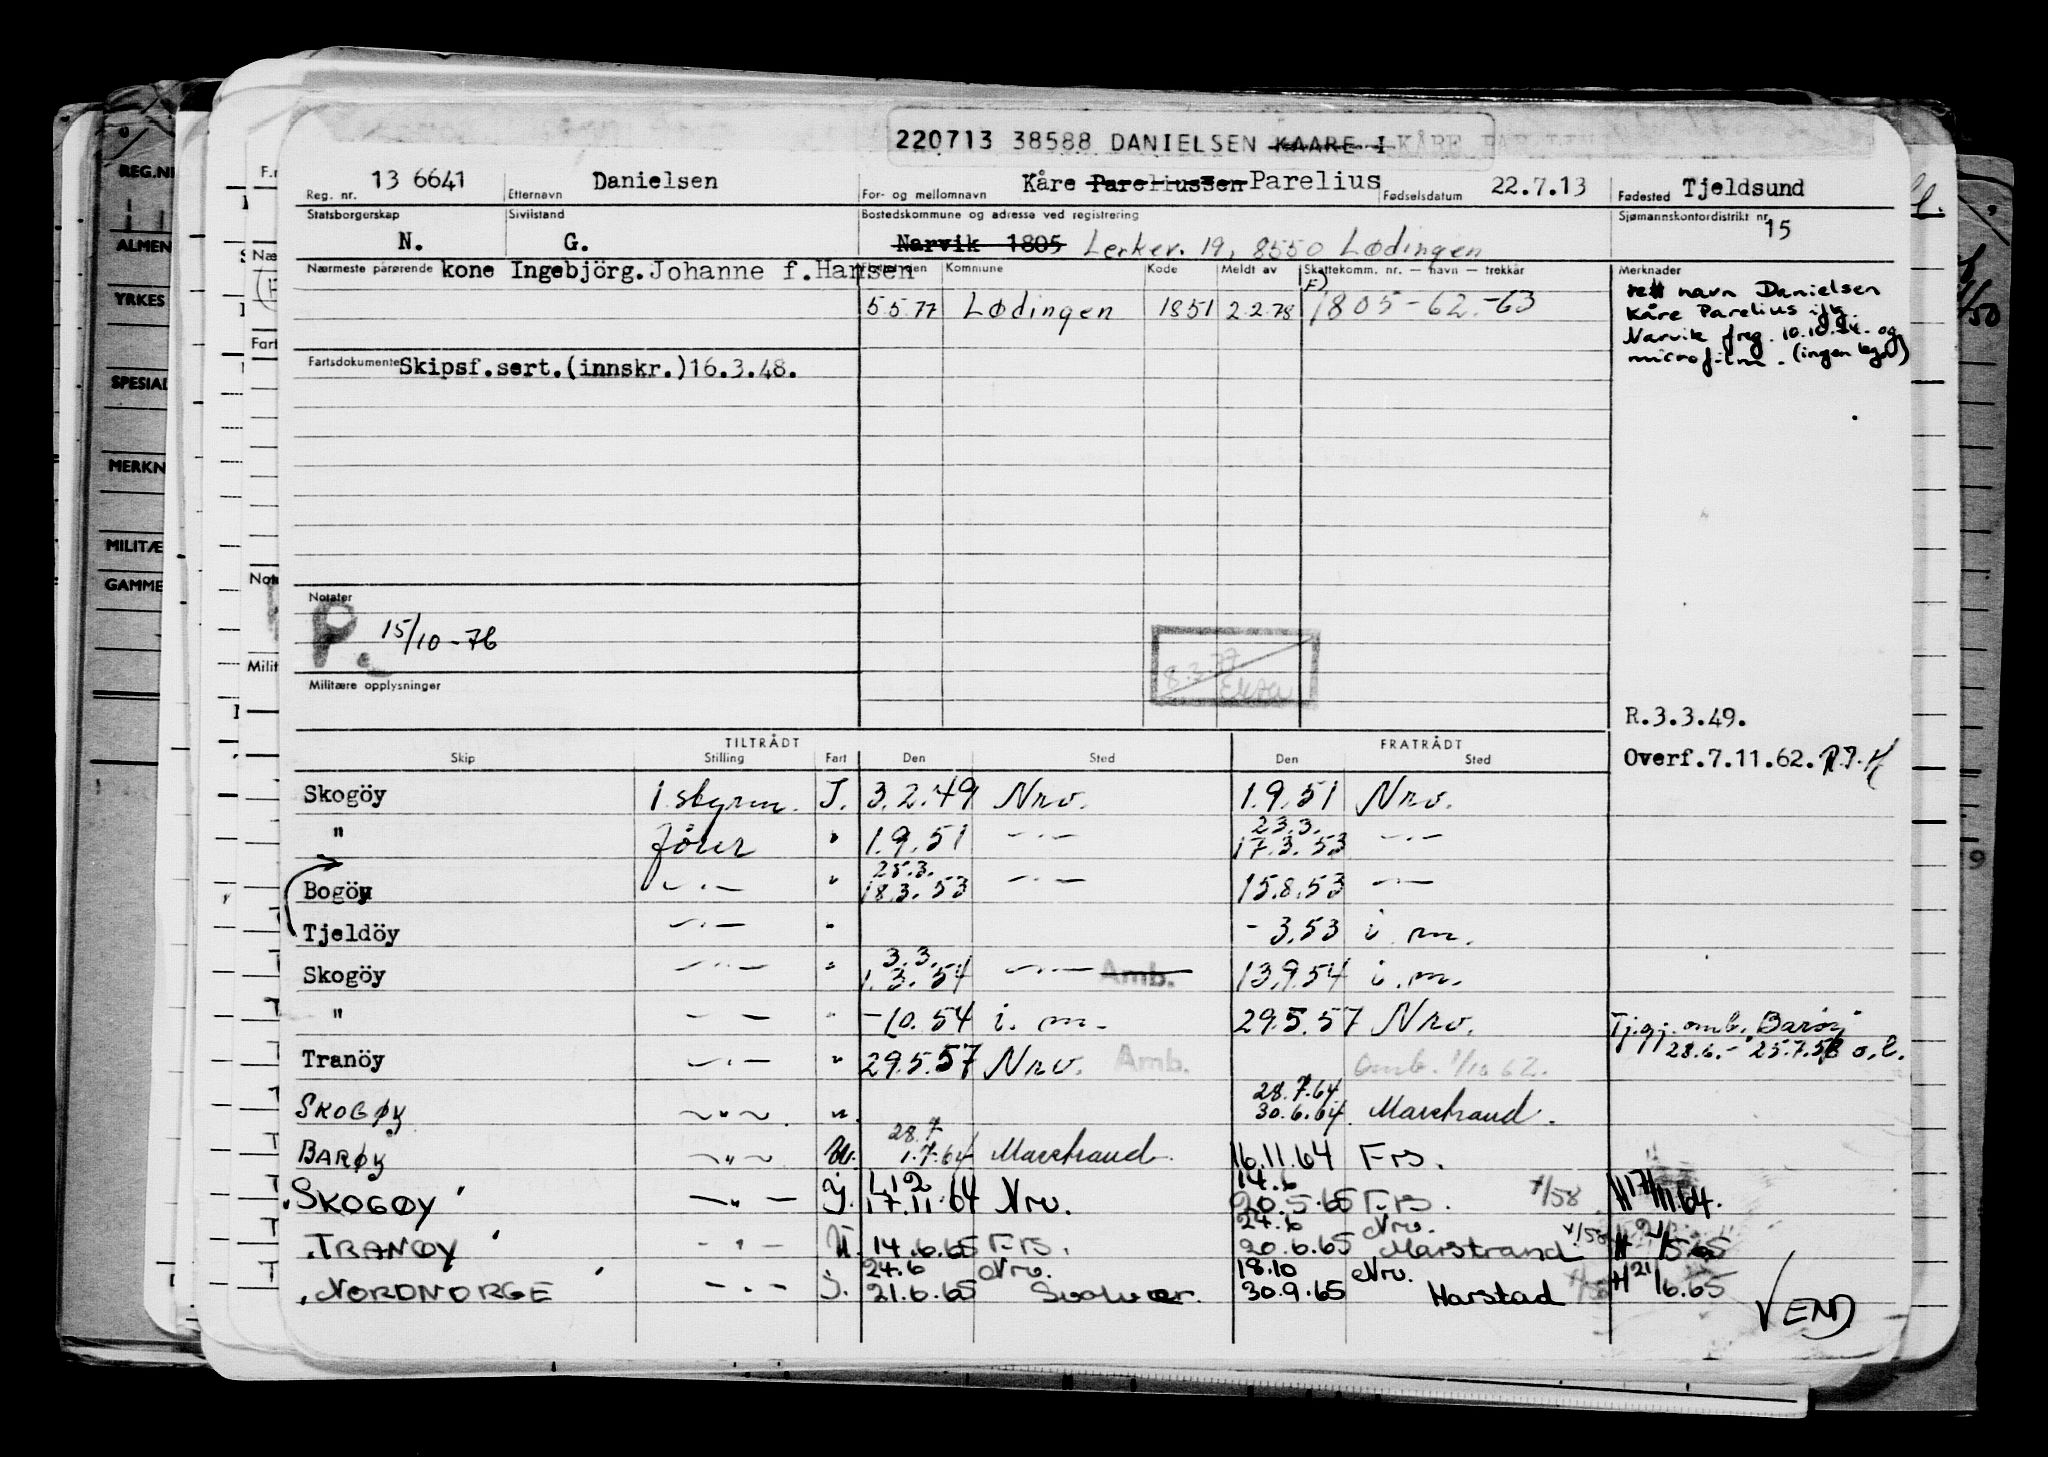 220713 38588 DANIELSEN KAARE I KÅRE PARELIUS
Reg. nr. 13 6641 Etternavn Danielsen For- og mellomnavn Kåre Pareliussen Parelius Fødselsdatum 22.7.13 Fødested Tjeldsund
Statsborgerskap N. Sivilstand G. Bostedskommune og adresse ved registrering Narvik 1805 Lerkev. 19, 8550 Lødingen Sjømannskontordistrikt nr. 15
Nærmeste pårørende kone Ingebjörg. Johanne f. Hansen Flyttet den Kommune Kode Meldt av Skattekomm. nr. — navn — trekkår Merknader
5.5.77 Lødingen 1851 2.2.78 F) 1805-62-63
rett navn Danielsen
Kåre Parelius iflg.
Narvik freg. 10.10.84. og
microfilm. (ingen bgn)
Fartsdokumenter Skipsf.sert.(innskr.)16.3.48.
Notater
P. 15/10-76
8.2.77
Militære opplysninger
R.3.3.49.
TILTRÅDT FRATRÅDT
Skip Stilling Fart Den Sted Den Sted
Overf.7.11.62.
Skogöy 1. styrm. I. 3.2.49 Nrv. 1.9.51 Nrv.
" fører " 1.9.51 —·— 23.3. 17.3.53 —·—
Bogöy —·— " 25.3. 18.3.53 —·— 15.8.53 —·—
Tjeldöy —·— " - 3.53 i.m.
Skogöy —·— " 3.3. 1.3.54 —·— Amb. 13.9.54 i.m.
" —·— " -10.54 i.m. 29.5.57 Nrv. Tj.gj. omb. Barøy
28.6.-25.7.58 o.l.
Tranöy —·— " 29.5.57 Nrv. Amb. omb. 1/10 62.
SKOGØY ~"~ ". 28.7.64 30.6.64 Marstrand.
BARØY ~"~ U. 28.7 1.7.64 Marstrand 16.11.64 Frs.
"SKOGØY" —"— I. L12 17.11.64 Nrv. 14.6 20.5.65 Frs. 1/58 H 17/11.64.
"TRANØY" -"- U. 14.6.65 Frs. 24.6 20.6.65 Nrv. Marstrand 1/58 H 21/5.65
"NORDNORGE" -"- I. 24.6 21.6.65 Nrv. Svolvær. 18.10 30.9.65 Nrv. Harstad H 21/6.65
VEND
REG.NR
ALMEN
YRKES
SPESIAL
MERKN
MILITÆ
GAMME